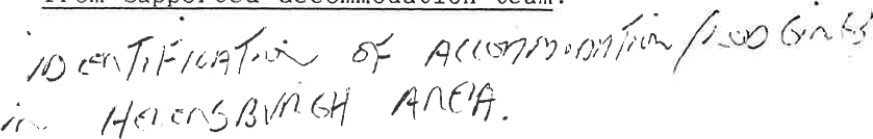 from supported accommodation team.
IDENTIFICATION OF ACCOMMODATION/LODGINGS
in HELENSBURGH AREA.